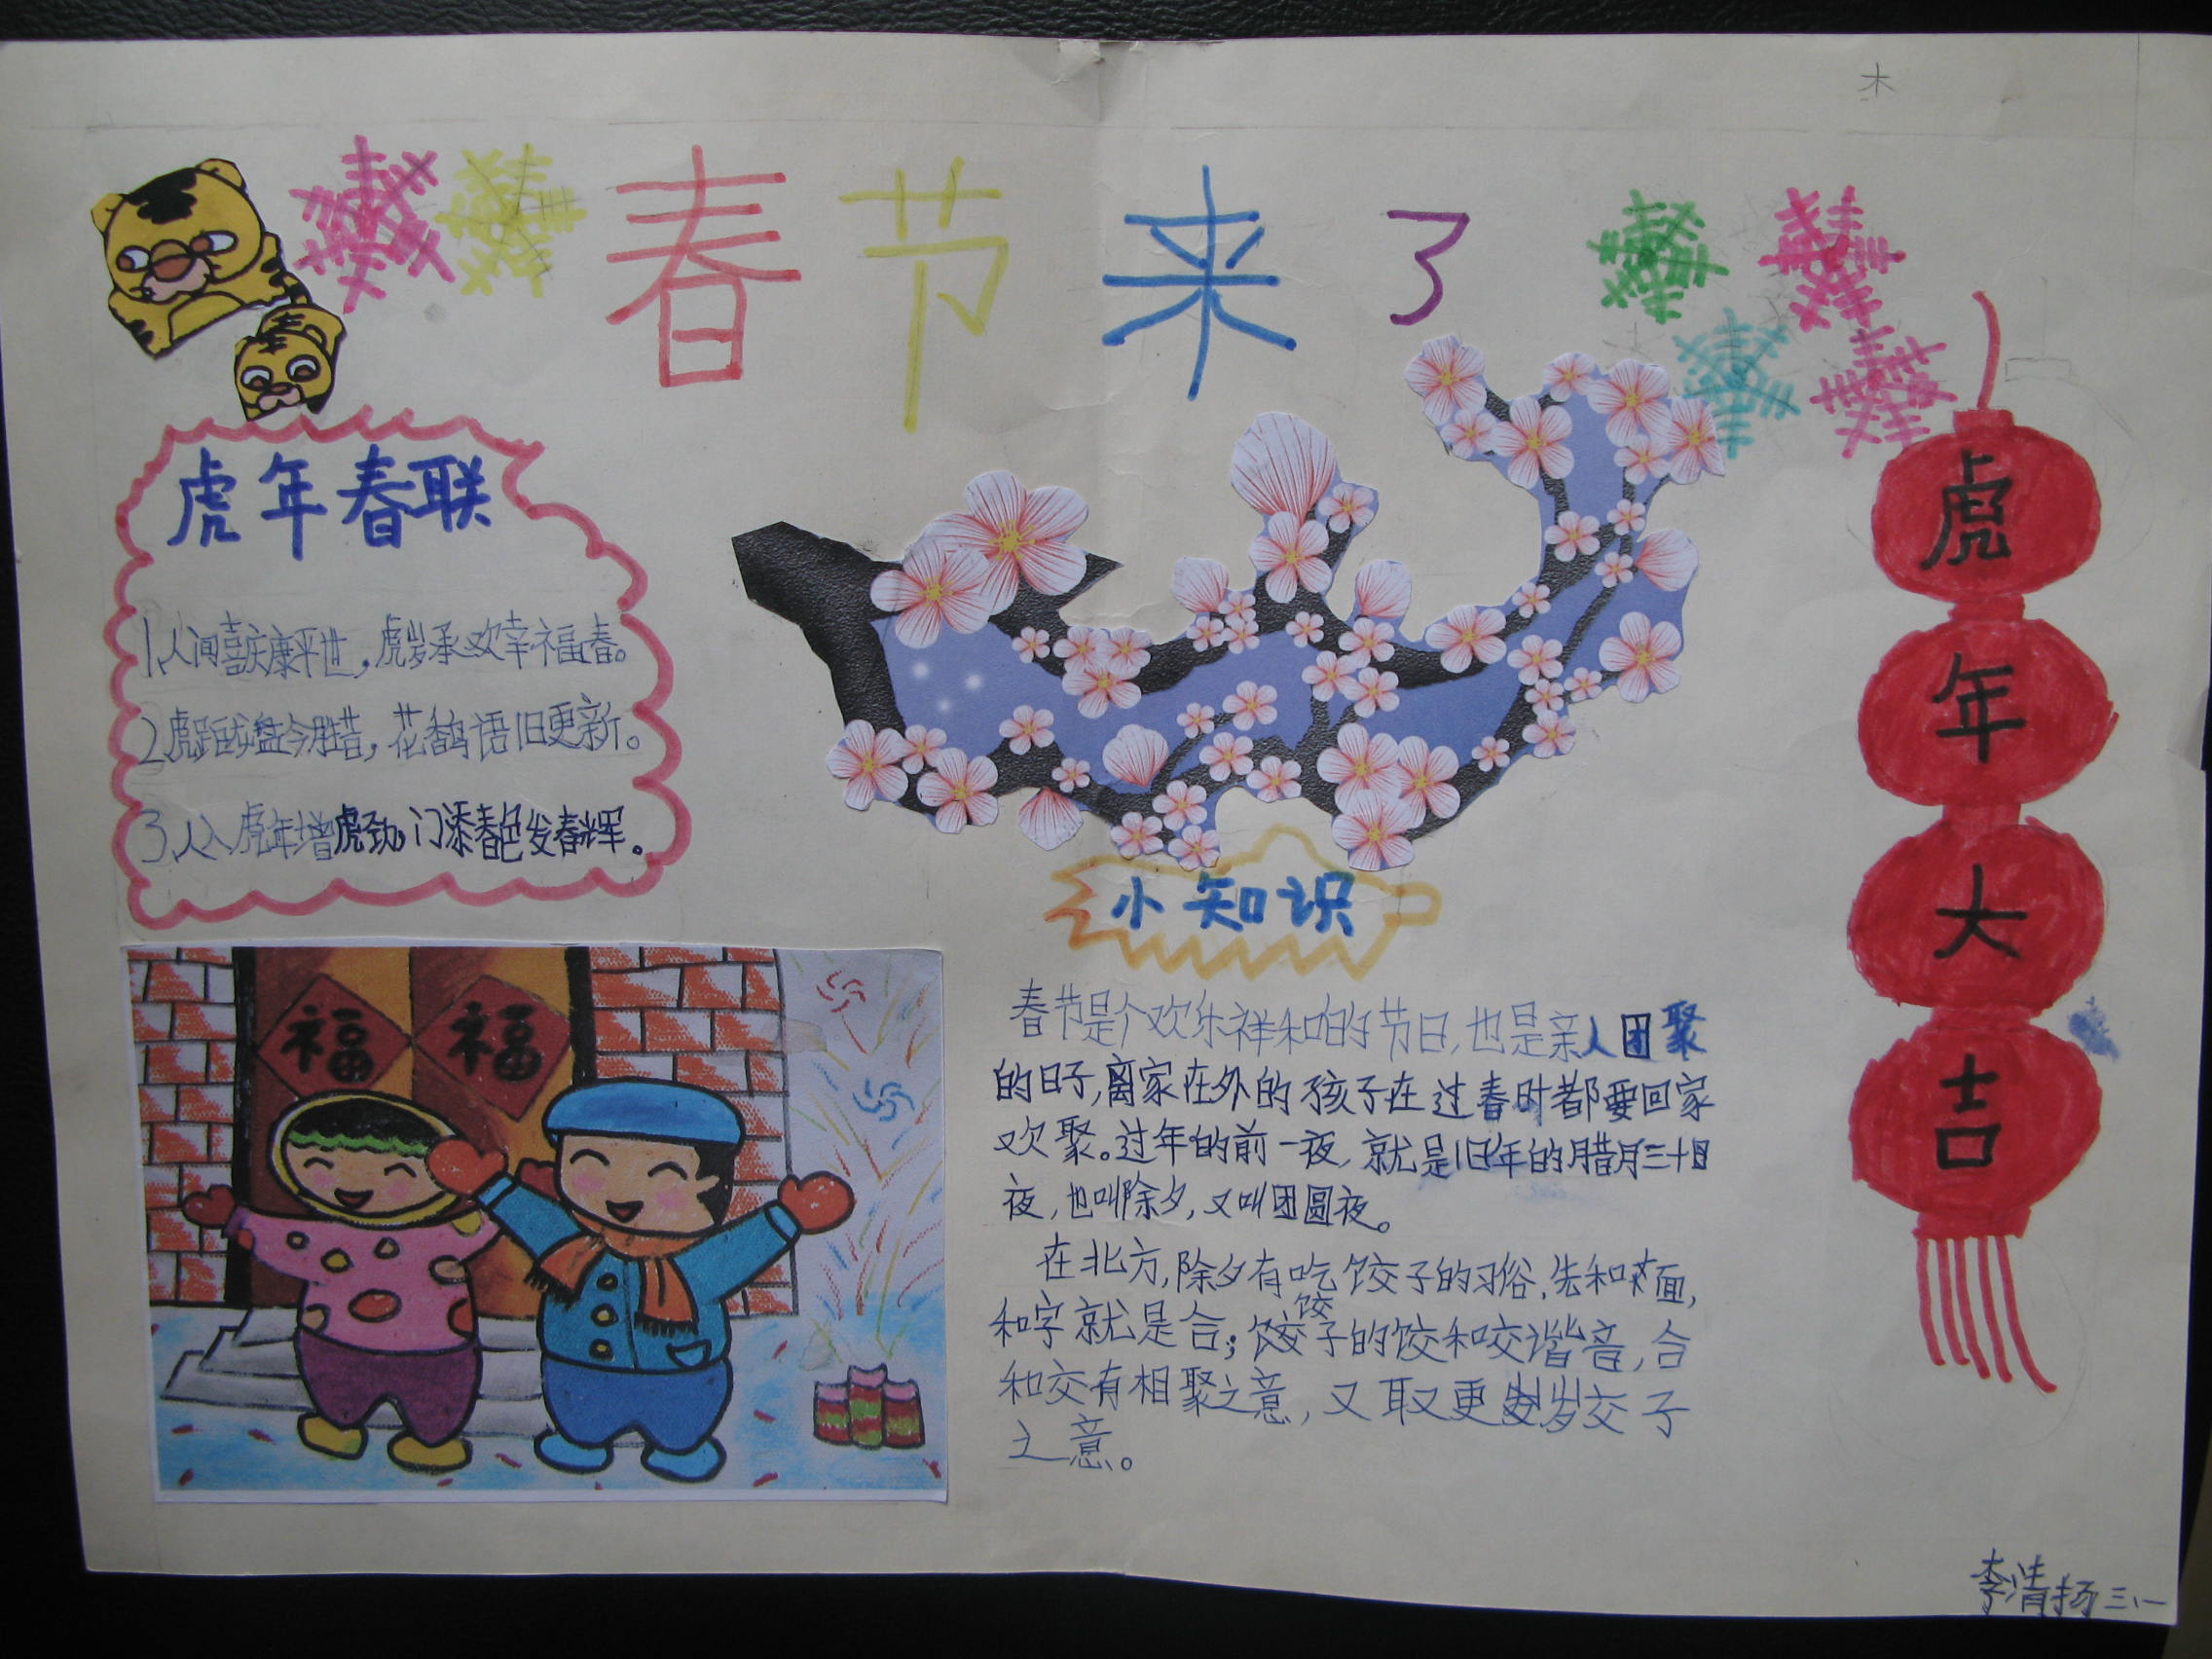 木
春节来了
虎年春联
1、人间喜庆康平世，虎岁承欢幸福春。
2虎踞龙盘今胜昔，花鹤语旧更新。
3、人入虎年增虎劲，门添春色发春辉。
福 福
小知识
春节是个欢乐祥和的节日，也是亲人团聚
的日子，离家在外的孩子在过春时都要回家
欢聚。过年的前一夜，就是旧年的腊月三十日
夜，也叫除夕，又叫团圆夜。
在北方，除夕有吃饺子的习俗，先和面，
和字就是合；饺子的饺和交谐音，合
和交有相聚之意，又取更岁交子
之意。
虎
年
大
吉
李清扬 三、一